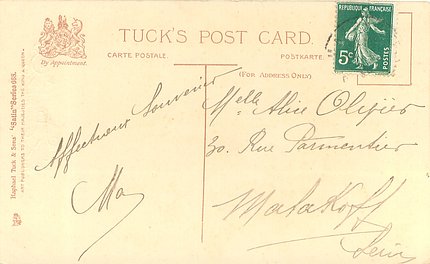 TUCK'S POST CARD.
CARTE POSTALE
POSTKARTE.
(FOR ADDRESS ONLY)
By Appointment.
Raphael Tuck & Sons' "Satin" Series 608.
ART PUBLISHERS TO THEIR MAJESTIES THE KING & QUEEN.
REPUBLIQUE FRANÇAISE
5c
POSTES
Affectueux Souvenir
May
Melle Alice Olivier
30. Rue Parmentier
Malakoff
Seine